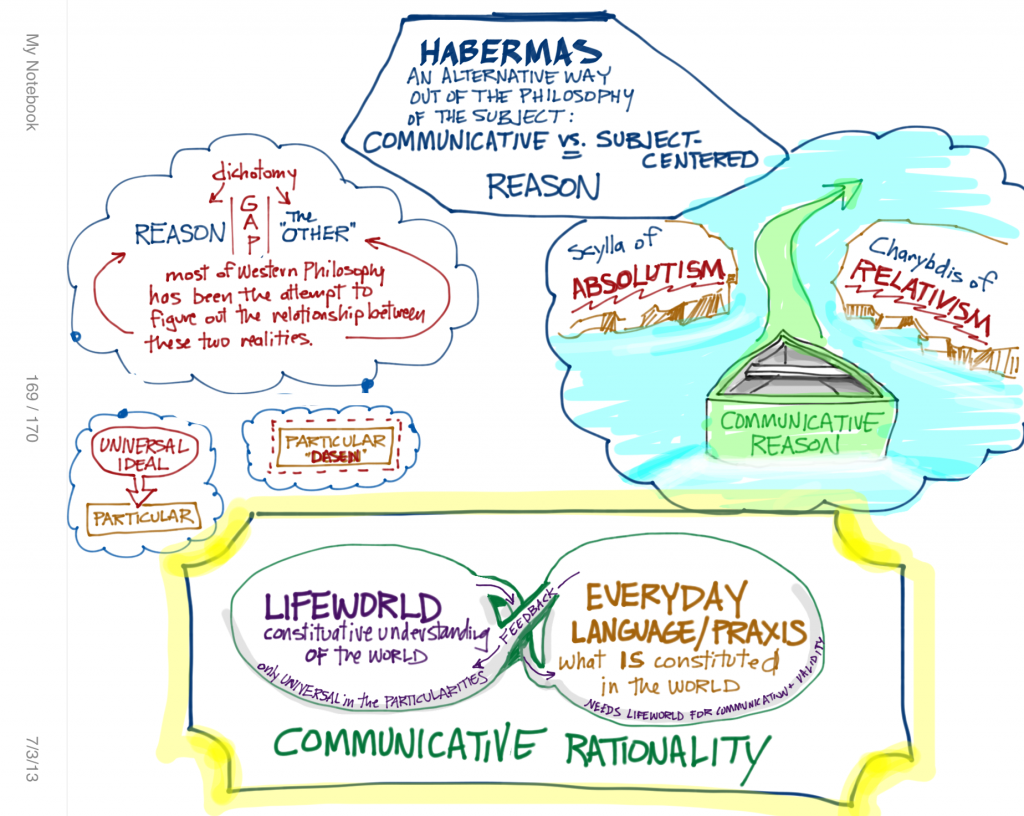 My Notebook
169 / 170
7/3/13
HABERMAS
AN ALTERNATIVE WAY
OUT OF THE PHILOSOPHY
OF THE SUBJECT:
COMMUNICATIVE VS. SUBJECT-
CENTERED
REASON
dichotomy
REASON GAP "The
"OTHER"
most of Western Philosophy
has been the attempt to
figure out the relationship between
these two realities.
Scylla of
ABSOLUTISM
Charybdis of
RELATIVISM
COMMUNICATIVE
REASON
UNIVERSAL
IDEAL
PARTICULAR
PARTICULAR
"DASEN"
LIFEWORLD
constituative understanding
OF the WORLD
only UNIVERSAL in the PARTICULARITIES
FEEDBACK
EVERYDAY
LANGUAGE/PRAXIS
what IS constituted
in the WORLD
NEEDS LIFEWORLD FOR COMMUNICATION & VALIDITY
COMMUNICATIVE RATIONALITY